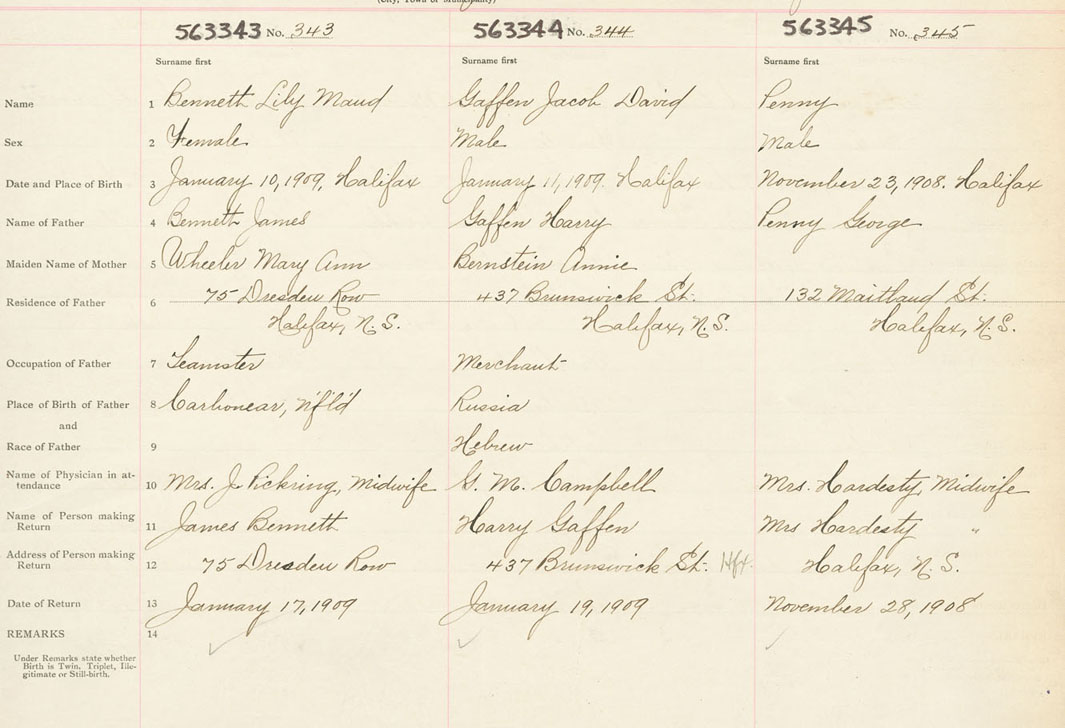 (City, Town or Municipality)
563343 No. 343 563344 No. 344 563345 No. 345
Surname first Surname first Surname first
Name 1 Bennett Lily Maud Gaffen Jacob David Penny
Sex 2 Female Male Male
Date and Place of Birth 3 January 10, 1909, Halifax January 11, 1909. Halifax November 23, 1908. Halifax
Name of Father 4 Bennett James Gaffen Harry Penny George
Maiden Name of Mother 5 Wheeler Mary Ann Bernstein Annie
Residence of Father 6 75 Dresden Row 437 Brunswick St. 132 Maitland St.
Halifax, N.S. Halifax, N.S. Halifax, N.S.
Occupation of Father 7 Teamster Merchant
Place of Birth of Father 8 Carbonear, N'f'l'd Russia
and
Race of Father 9 Hebrew
Name of Physician in at-
tendance 10 Mrs. J. Pickring, Midwife G. M. Campbell Mrs. Hardesty, Midwife
Name of Person making
Return 11 James Bennett Harry Gaffen Mrs Hardesty "
Address of Person making
Return 12 75 Dresden Row 437 Brunswick St. Hfx. Halifax, N.S.
Date of Return 13 January 17, 1909 January 19, 1909 November 28, 1908
REMARKS 14
Under Remarks state whether
Birth is Twin, Triplet, Ille-
gitimate or Still-birth.